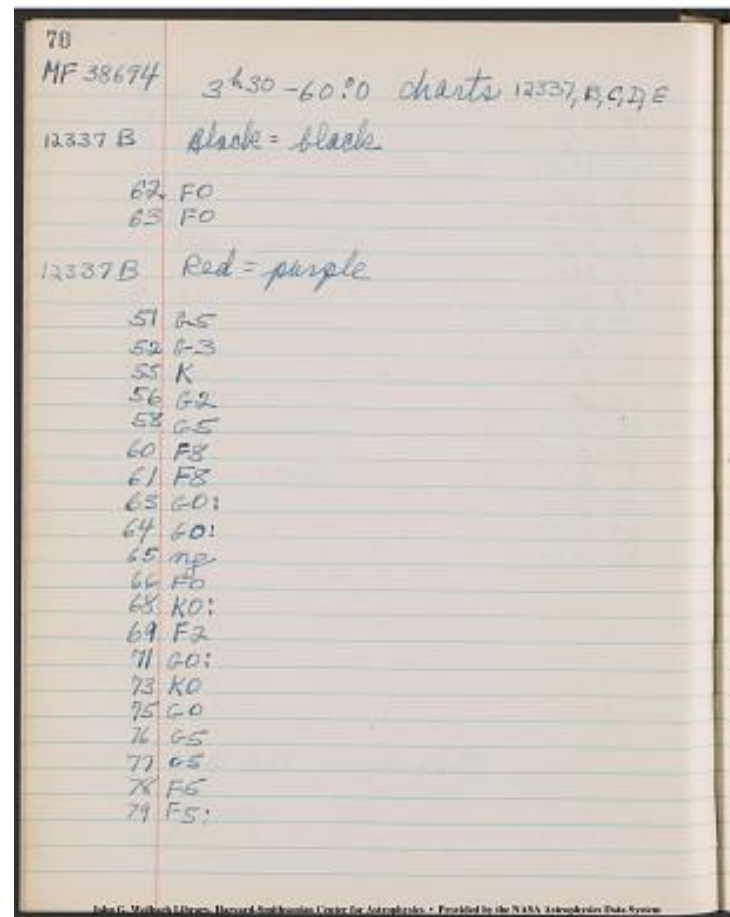 70
MF 38694 3h30 -60°.0 charts 12337, B, C, D, E
12337 B Black = black
62 F0
63 F0
12337 B Red = purple
51 G5
52 G3
55 K
56 G2
58 G5
60 F8
61 F8
63 G0:
64 G0:
65 ng
66 F0
68 K0:
69 F2
71 G0:
73 K0
75 G0
76 G5
77 G5
78 F5
79 F5:
John G. Wolbach Library, Harvard-Smithsonian Center for Astrophysics • Provided by the NASA Astrophysics Data System